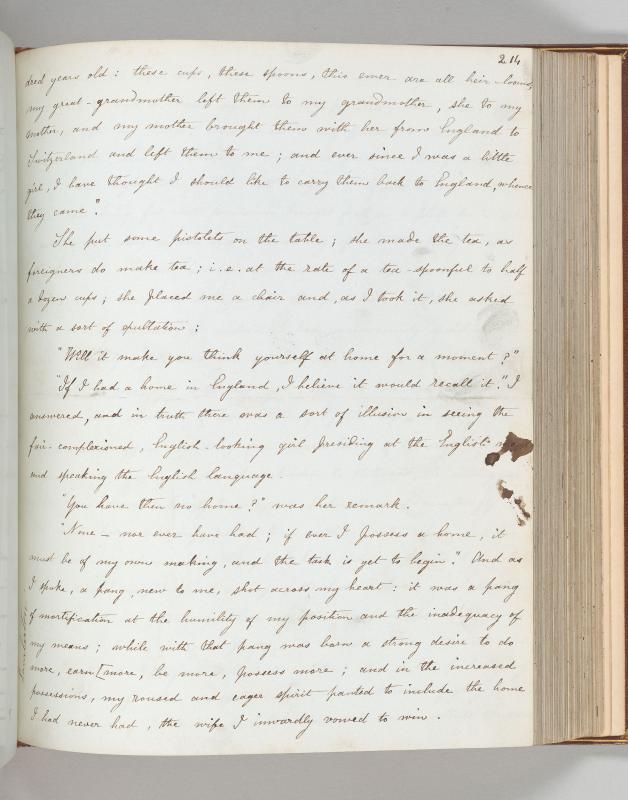 214
dred years old : these cups, these spoons, this ewer are all heir-looms;
my great-grandmother left them to my grandmother, she to my
mother, and my mother brought them with her from England to
Switzerland and left them to me ; and ever since I was a little
girl, I have thought I should like to carry them back to England, whence
they came".
She put some pistolets on the table ; she made the tea, as
foreigners do make tea ; i.e. at the rate of a tea-spoonful to half
a dozen cups ; she placed me a chair and, as I took it, she asked
with a sort of exultation ;
"Will it make you think yourself at home for a moment ?"
"If I had a home in England, I believe it would recall it." I
answered, and in truth there was a sort of illusion in seeing the
fair-complexioned, English-looking girl presiding at the English
and speaking the English language.
"You have then no home ?" was her remark.
"None – nor ever have had ; if ever I possess a home, it
must be of my own making, and the task is yet to begin". And as
I spoke, a pang, new to me, shot across my heart : it was a pang
of mortification at the humility of my position and the inadequacy of
my means ; while with that pang was born a strong desire to do
more, earn [more, be more, possess more ; and in the increased
possessions, my roused and eager spirit panted to include the home
I had never had, the wife I inwardly vowed to win.